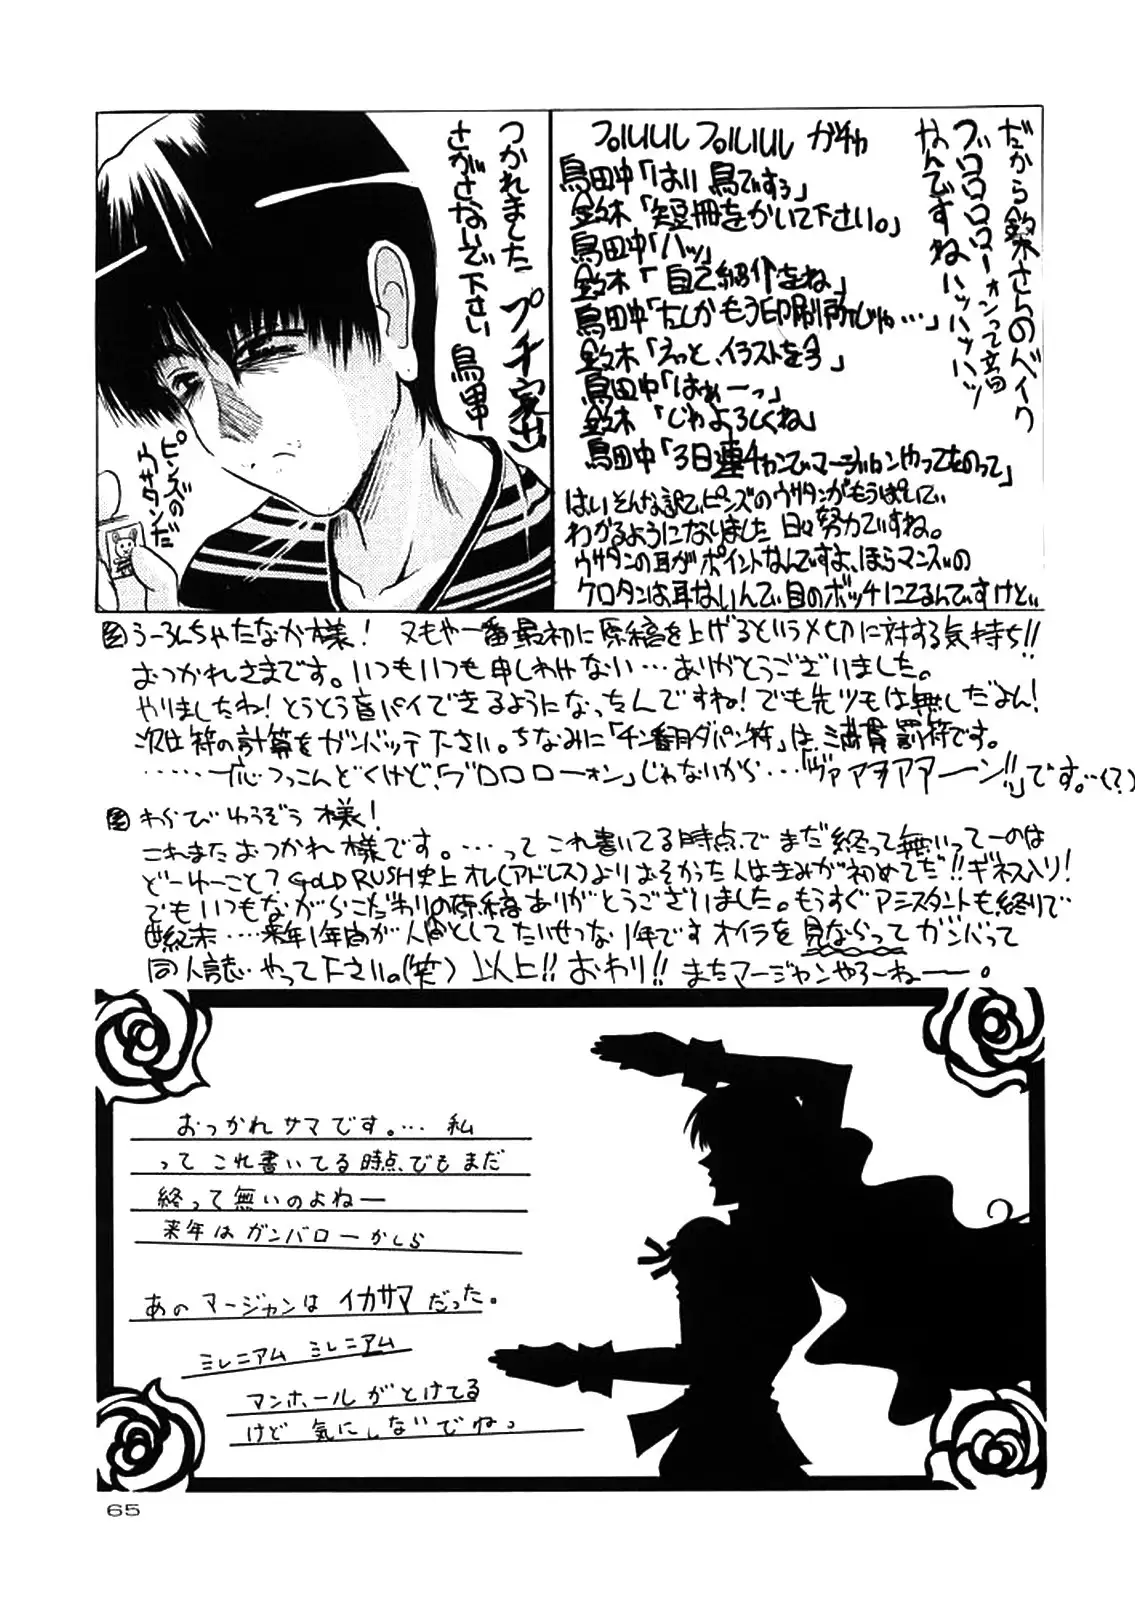 だから鈴木さんのバイク
ブロロロローォンって音
なんですねハッハッハッ
プルルルル プルルルル ガチャ
鳥田中「はい 鳥ですぅ」
鈴木「短冊をかいて下さい。」
鳥田中「ハッ」
鈴木「自己紹介をね」
鳥田中「たしかもう印刷所じゃ…」
鈴木「えっと、イラストを今」
鳥田中「はぁーっ」
鈴木「じゃよろしくね」
鳥田中「3日連チャンでマージャンやってたのって」
はい そんな訳で、ピンズのウサタンがもうぱいで
わかるようになりました 日々努力ですね。
ウサタンの耳がポイントなんですよ、ほらマンズの
ケロタンは耳ないんで 目のポッチにてるんですけど
つかれました プチ家出
さがさないで下さい 鳥田中
ピンズの
ウサタンだ
うーろんちゃたなか様! 又もや一番最初に原稿を上げるという〆切に対する気持ち!!
おつかれさまです。いつもいつも申しわけない…ありがとうございました。
やりましたね!とうとう盲パイできるようになっちゃんですね!でも先ツモは無しだよん!
次は符の計算をガンバッテ下さい。ちなみに「チン番月ダパン符」は、満貫罰符です。
……一応つっこんどくけど、「ブロロローォン」じゃないから…「ヴァアヲアアーン!!」です。…(?)
わらびゆうぞう様!
これまたおつかれ様です。…ってこれ書いてる時点でまだ終って無いってーのは
どーゆーこと?GOLD RUSH史上オレ(アドレス)よりおそかった人はきみが初めてだ!!ギネス入り!
でもいつもながらこだわりの原稿ありがとうございました。もうすぐアシスタントも終りで
世紀末…来年1年間が人間としてたいせつな1年です オイラを見ならってガンバって
同人誌やって下さい。(笑) 以上!! おわり!! またマージャンやろーねー。
おっかれサマです。… 私
って これ書いてる時点でもまだ
終って無いのよねー
来年はガンバローかしら
あのマージャンは イカサマだった。
ミレニアム ミレニアム
マンホールがとけてる
けど 気にしないでねっ
65